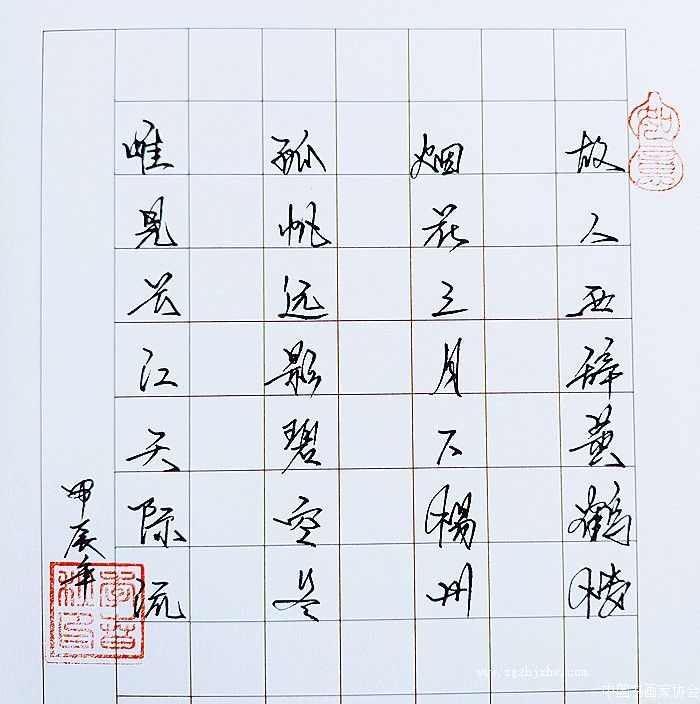 故人西辞黄鹤楼
烟花三月下楊州
孤帆远影碧空尽
唯見长江天际流
甲辰年
www.zgshjxhw.com
中国书画家协会